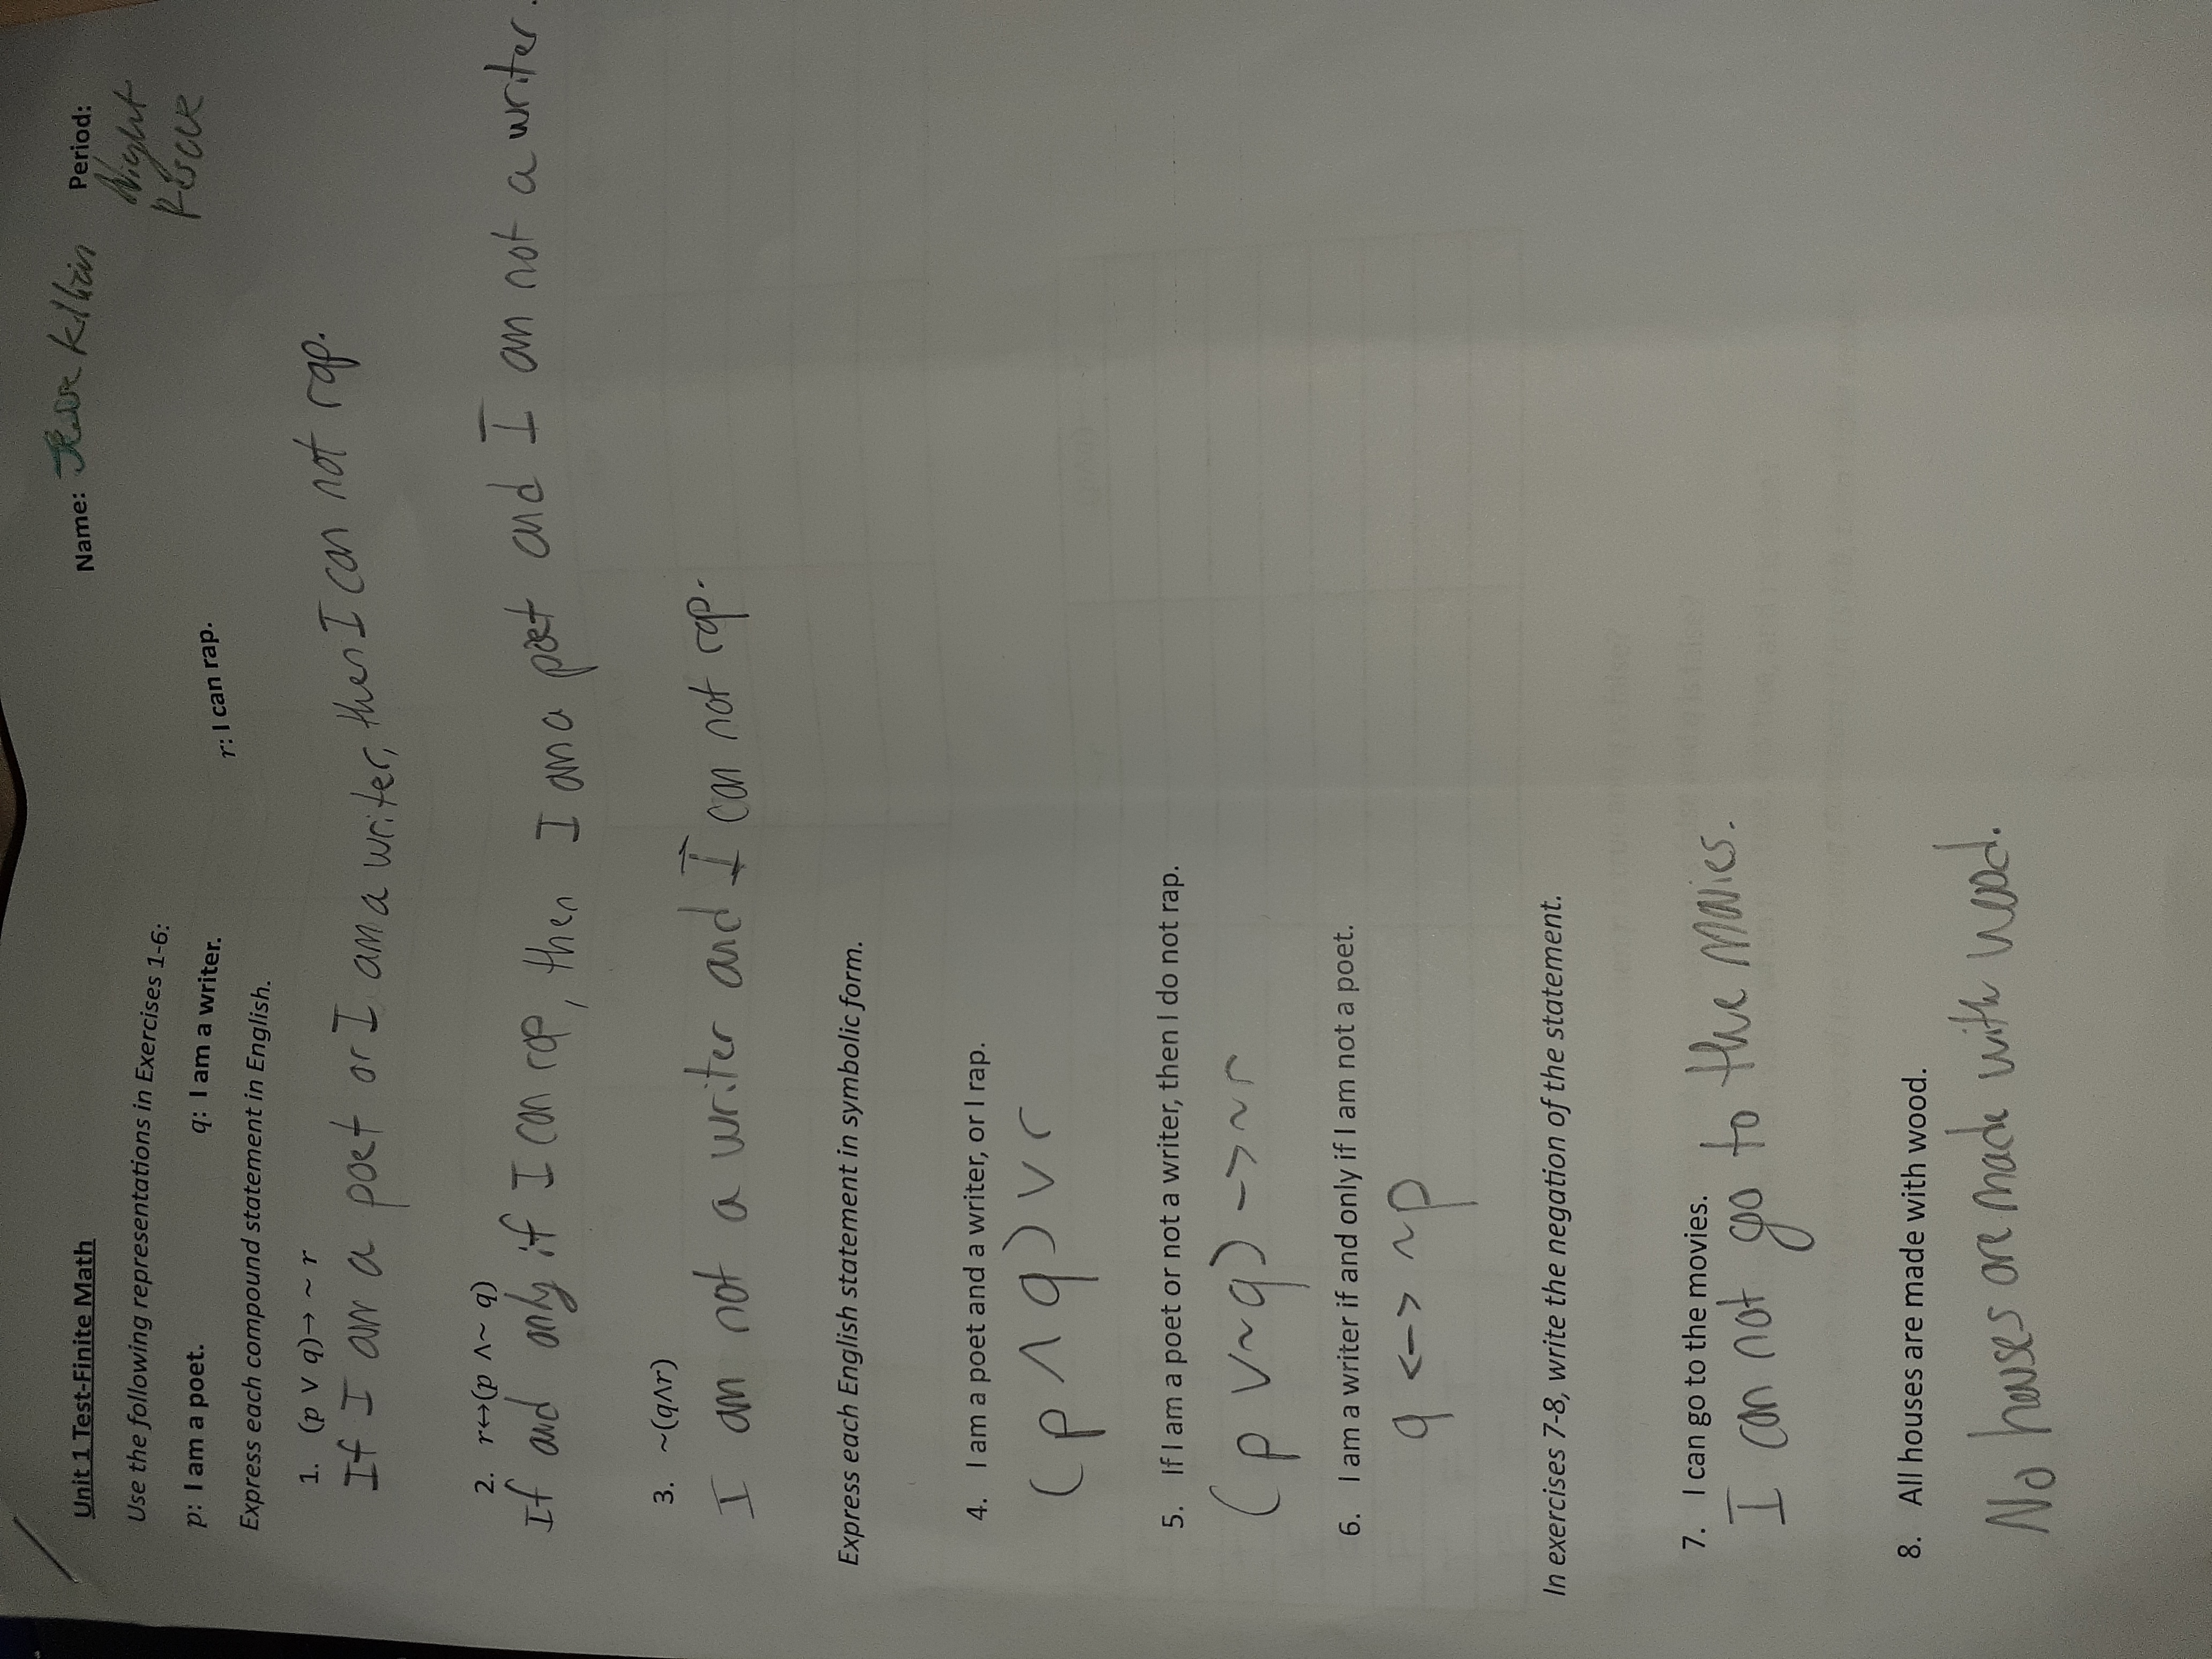 Unit 1 Test-Finite Math Name: Killian Period:
Night
Rescue
Use the following representations in Exercises 1-6:
p: I am a poet. q: I am a writer. r: I can rap.
Express each compound statement in English.
1. (p ∨ q)→ ~ r
If I am a poet or I am a writer, then I can not rap.
2. r↔(p ∧~ q)
If and only if I can rap, then I am a poet and I am not a writer.
3. ~(q∧r)
I am not a writer and I can not rap.
Express each English statement in symbolic form.
4. I am a poet and a writer, or I rap.
(p ∧ q) ∨ r
5. If I am a poet or not a writer, then I do not rap.
(p ∨~q) -> ~r
6. I am a writer if and only if I am not a poet.
q <-> ~p
In exercises 7-8, write the negation of the statement.
7. I can go to the movies.
I can not go to the movies.
8. All houses are made with wood.
No houses are made with wood.